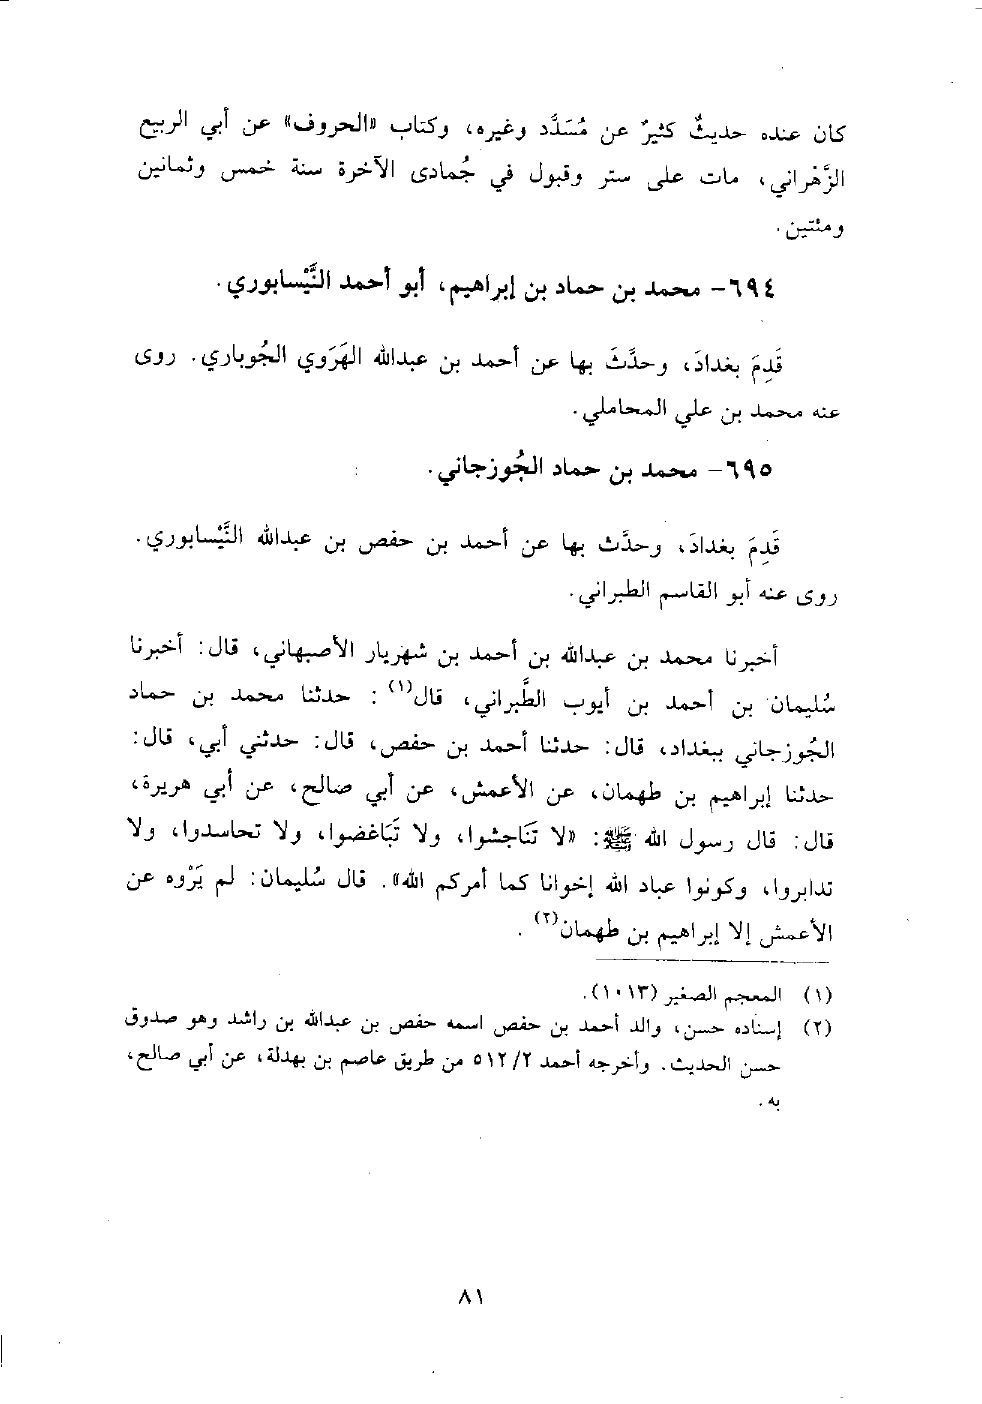 كان عنده حديثٌ كثيرٌ عن مُسَدَّد وغيره، وكتاب «الحروف» عن أبي الربيع
الزَّهْراني، مات على ستر وقبول في جُمادى الآخرة سنة خمس وثمانين
ومئتين.
٦٩٤- محمد بن حماد بن إبراهيم، أبو أحمد النَّيْسابوري.
قَدِمَ بغدادَ، وحدَّثَ بها عن أحمد بن عبدالله الهَرَوي الجُوباري. روى
عنه محمد بن علي المحاملي.
٦٩٥- محمد بن حماد الجُوزجاني.
قَدِمَ بغدادَ، وحدَّث بها عن أحمد بن حفص بن عبدالله النَّيْسابوري.
روى عنه أبو القاسم الطبراني.
أخبرنا محمد بن عبدالله بن أحمد بن شهريار الأصبهاني، قال: أخبرنا
سُليمان بن أحمد بن أيوب الطَّبراني، قال(١): حدثنا محمد بن حماد
الجُوزجاني ببغداد، قال: حدثنا أحمد بن حفص، قال: حدثني أبي، قال:
حدثنا إبراهيم بن طهمان، عن الأعمش، عن أبي صالح، عن أبي هريرة،
قال: قال رسول الله ﷺ: «لا تَنَاجشوا، ولا تَبَاغضوا، ولا تحاسدوا، ولا
تدابروا، وكونوا عباد الله إخوانا كما أمركم الله». قال سُليمان: لم يَرْوه عن
الأعمش إلا إبراهيم بن طهمان(٢).
(١) المعجم الصغير (١٠١٣).
(٢) إسناده حسن، والد أحمد بن حفص اسمه حفص بن عبدالله بن راشد وهو صدوق
حسن الحديث. وأخرجه أحمد ٢/ ٥١٢ من طريق عاصم بن بهدلة، عن أبي صالح،
به.
٨١